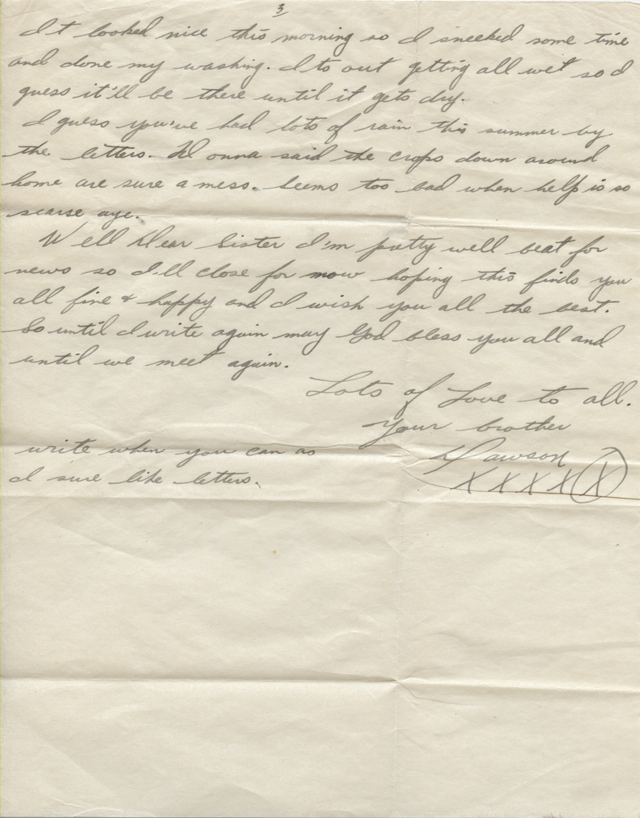 3
It looked nice this morning so I sneeked some time
and done my washing. Its out getting all wet so I
guess it'll be there until it gets dry.
I guess you've had lots of rain this summer by
the letters. Wonna said the crops down around
home are sure a mess. Seems too bad when help is so
scarse aye.
Well Dear Sister I'm patty well beat for
news so I'll close for now hoping this finds you
all fine & happy and I wish you all the best.
So until I write again may God bless you all and
until we meet again.
Lots of Love to all.
Your brother
Dawson
XXXXX
write when you can as
I sure like letters.